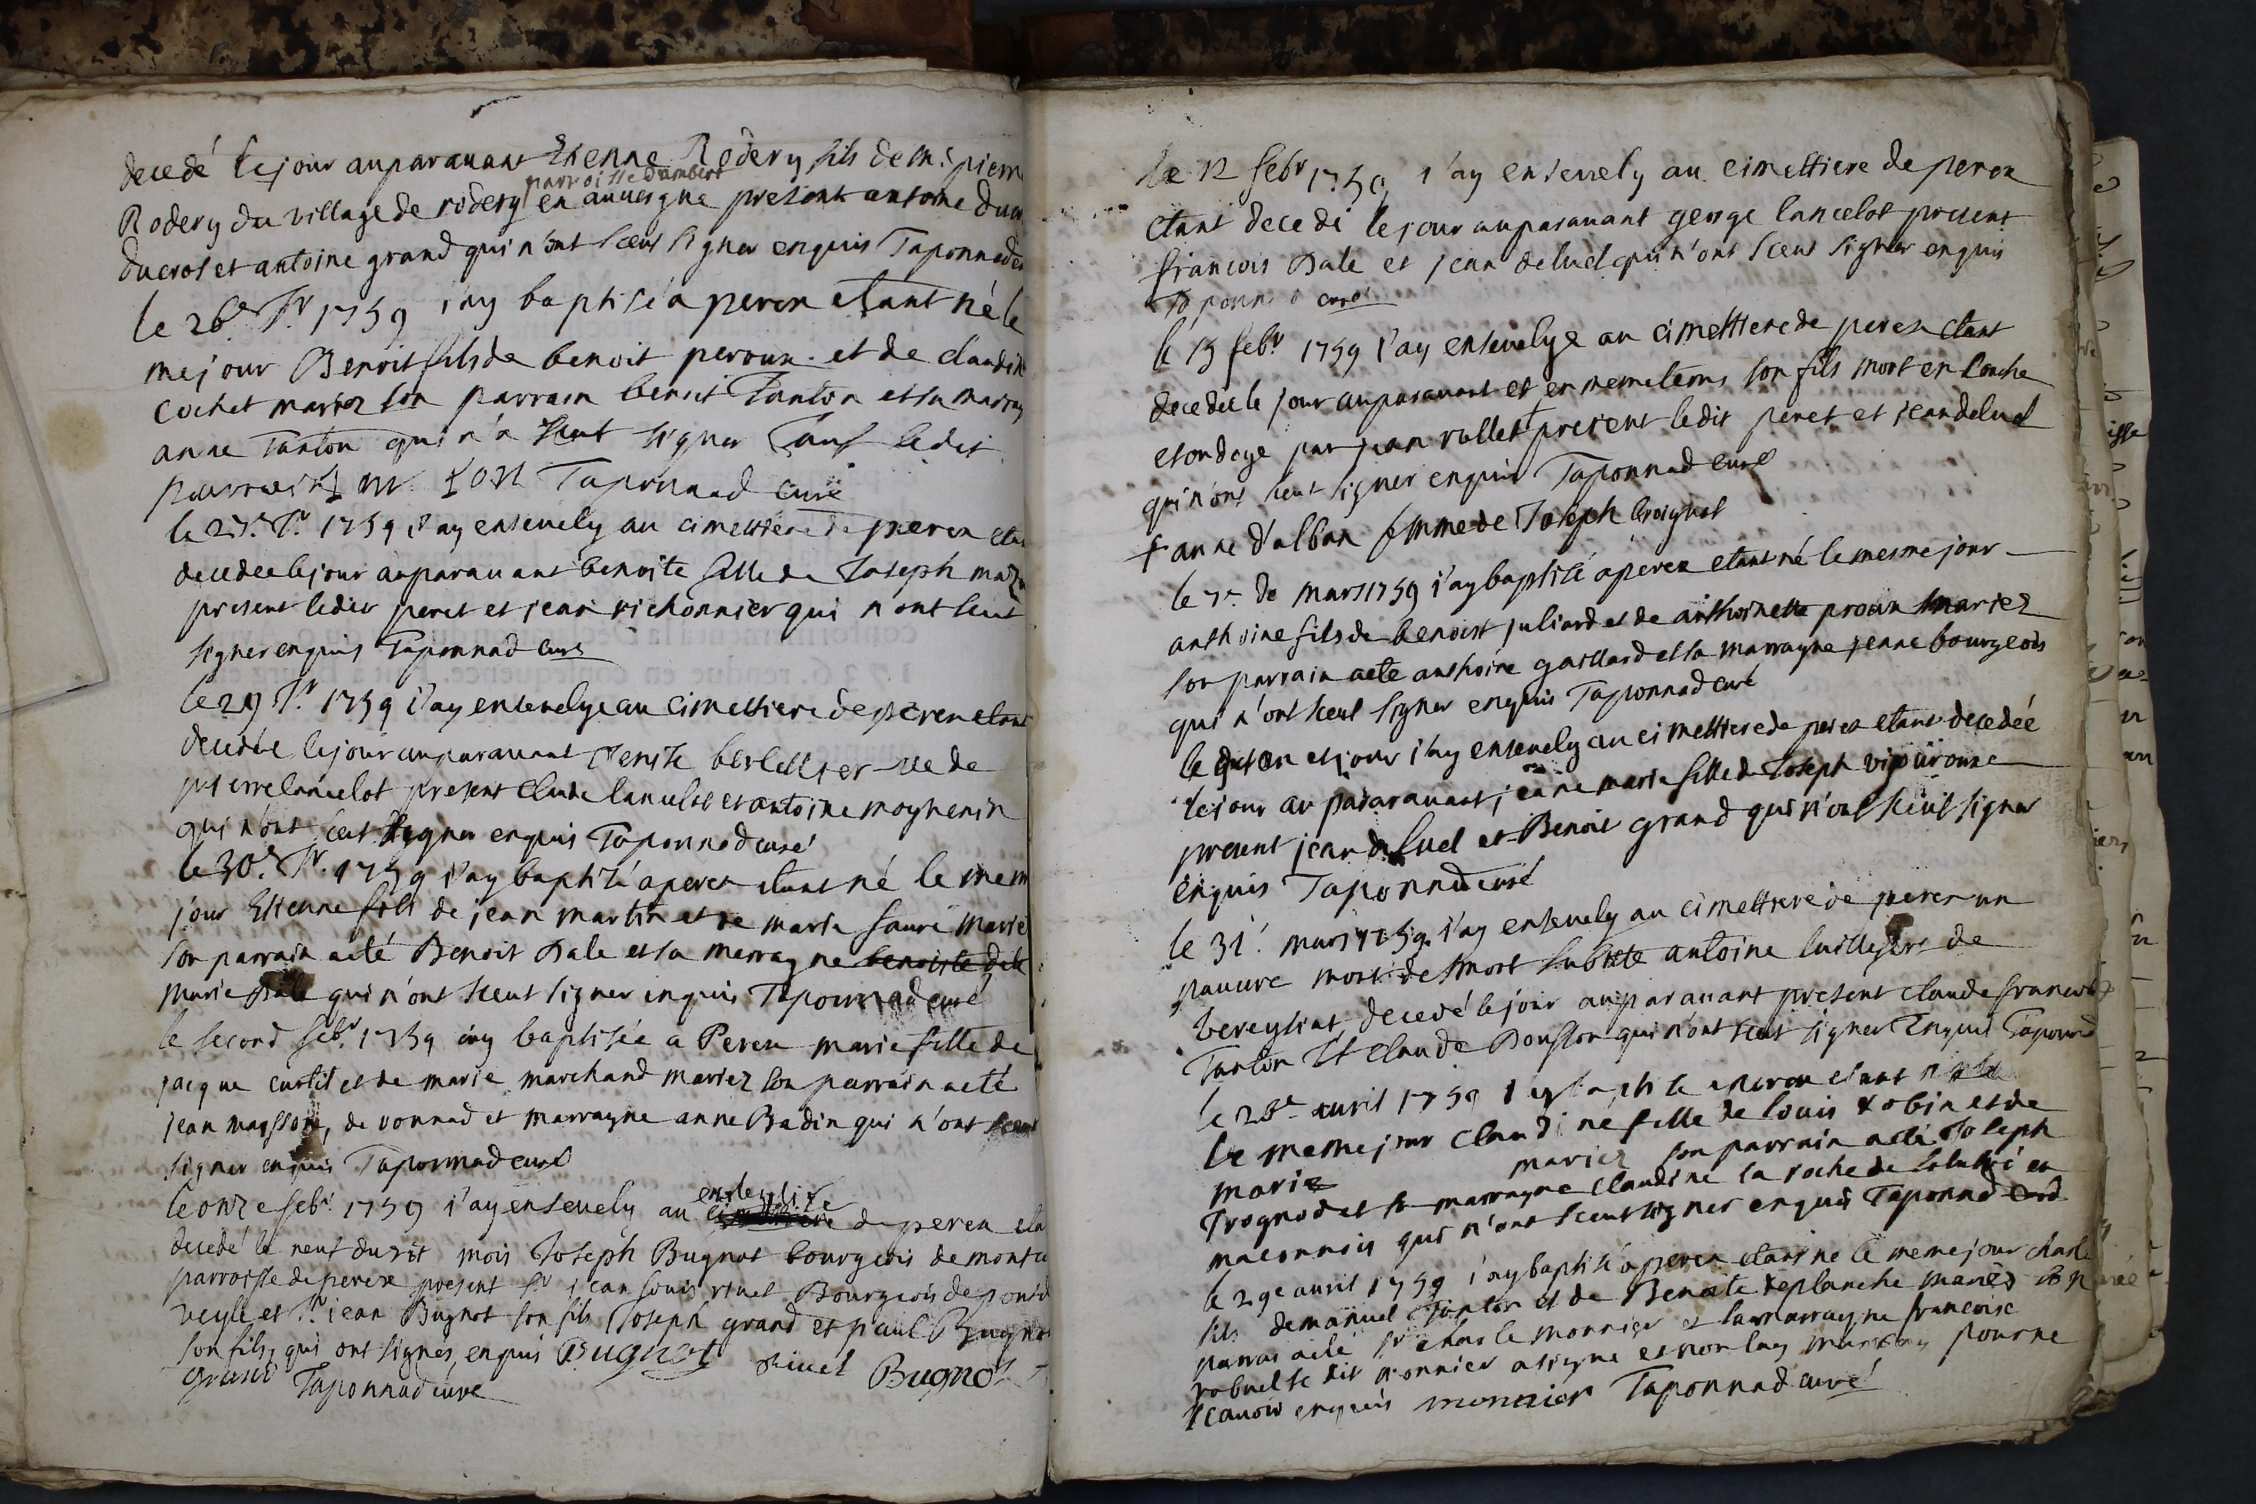 decedé le jour auparauant Etienne Rodery fils de m.e pierre
parroisse d'ambert
Rodery du village de rodery en auuergne present antoine
ducrot et antoine grand qui n'ont sceut signer enquis Taponnad
le 26.e Jr 1759 i'ay baptisé a perex etant né le
me jour Benoit fils de benoit peroux et de claudine
cochet mariez son parrain benoit Tanton et sa marray
anne Tanton qui n'a sceut signer sauf ledit
parrain Taponnad curé
le 27.e Jr 1759 i'ay enseuely au cimettiere de perex eta
decedee le jour auparauant benoite fille de Joseph
present ledit peret et jean richonnier qui n ont sceut
signer enquis Taponnad curé
le 29 Jr 1759 i'ay enseuelye au cimettiere de perex etant
decedée le jour auparauant ve de
pierre lancelot present claude lancelot et antoine moynenin
qui n'ont sceut signer enquis Taponnad curé
le 30.e Jr. 1759 i'ay baptisé a perex etant né le mem
jour Etienne fils de jean martin et de marie faure marié
son parrain a eté Benoit Dale et sa marrayne benoiste dale
marie Dale qui n'ont sceut signer enquis Taponnad curé
le second febr. 1759 i'ay baptisée a Perex marie fille de
jacque curtil et de marie marchand mariez son parrain a eté
jean de vonnad et marrayne anne Badin qui n'ont sceut
signer enquis Taponnad curé
en leglise
le onze febr 1759 i'ay enseuely au cimettiere de perex eta
decedé le neuf dudit mois Joseph Bugnot bourgeois de
parroisse de perex present sr jean louis riuel Bourgeois de pont d
veyle et sr. jean Bugnot son fils Joseph grand et paul Bugnot
son fils, qui ont signes enquis Bugnot riuel Bugnot
grand Taponnad curé
le 12 febr 1759 i'ay enseuely au cimettiere de perex
etant decedé le jour auparauant george lancelot present
francois Dale et jean deluel qui n'ont sceut signer enquis
Taponnad curé
le 15 febr 1759 i'ay enseuelye au cimettiere de perex etant
decedée le jour auparauant et en meme tems son fils mort en couche
et ondoye par jean rollet present ledit peret et jean deluel
qui n'ont sceut signer enquis Taponnad curé
+ anne d'alban femme de Joseph broignot
le 7e de mars 1759 i'ay baptisé a perex etant né le mesme jour
anthoine fils de benoist juliard et de anthoinette mariez
son parrain a eté anthoine gaillard et sa marrayne jeane bourgeois
qui n'ont sceut signer enquis Taponnad curé
le et jour i'ay enseuely au cimettiere de perex etant decedée
le jour auparauant jeane marie fille de Joseph
present jean deluel et Benoit grand qui n'ont sceut signer
enquis Taponnad curé
le 31.e mars 1759 i'ay enseuely au cimettiere de perex un
pauure mort de mort subitte antoine de
decedé le jour auparauant present claude francois
Tanton et claude qui n'ont sceut signer enquis Taponnad
le 26e auril 1759 i'ay baptisé a perex etant né
le meme jour claudine fille de louis robin et de
marie mariez son parrain a eté Joseph
Trognod et sa marrayne claudine la roche de en
maconnois qui n'ont sceut signer enquis Taponnad curé
le 29e auril 1759 i'ay baptisé a perex etant né le meme jour charle
fils de manuel Tanton et de Benoite deplanche mariés son
parrain a eté sr charle monnier et sa marrayne francoise
robuel le dit monnier a signe et non la marrayne pour ne
scauoir enquis monnier Taponnad curé